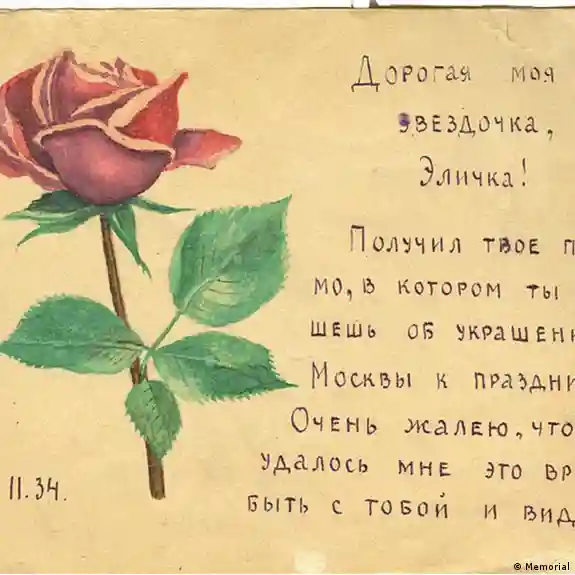 Дорогая моя
звездочка,
Эличка!
Получил твое п
мо, в котором ты
шешь об украшени
Москвы к праздни
Очень жалею, что
удалось мне это вр
быть с тобой и вид
11.34.
© Memorial